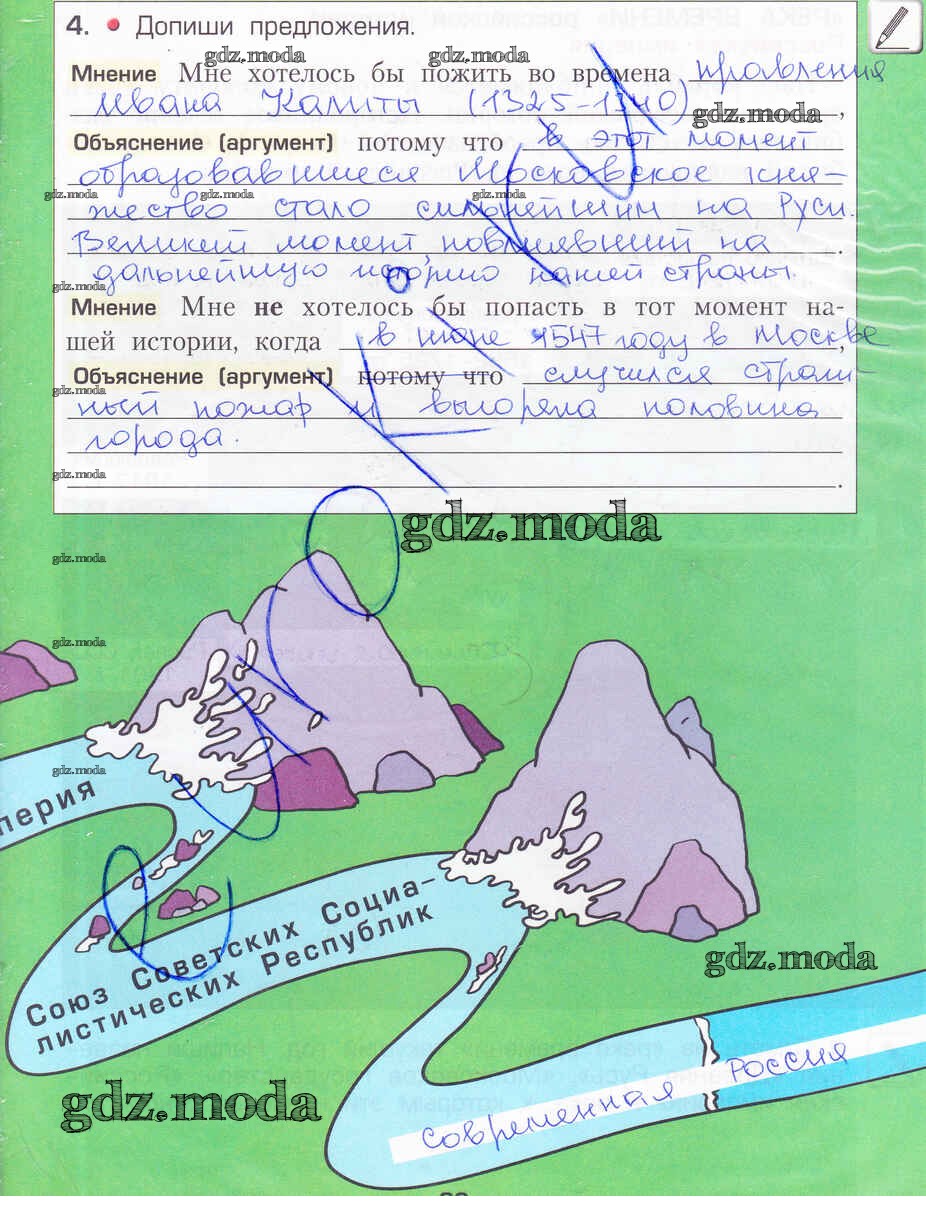 4. • Допиши предложения.
gdz.moda gdz.moda
Мнение Мне хотелось бы пожить во времена правления
Ивана Калиты (1325-1340),
gdz.moda
Объяснение (аргумент) потому что в этот момент
образовавшиеся Московское кня-
gdz.moda gdz.moda
жество стало сильнейшим на Руси.
Великий момент, повлиявший на
дальнейшую историю нашей страны.
gdz.moda
Мнение Мне не хотелось бы попасть в тот момент на-
шей истории, когда в июне 1547 году в Москве,
Объяснение (аргумент) потому что случился страш-
ный пожар и выгорела половина
города.
gdz.moda
.
gdz.moda
gdz.moda
gdz.moda
gdz.moda
перия
Союз Советских Социа-
листических Республик
gdz.moda
современная Россия
gdz.moda